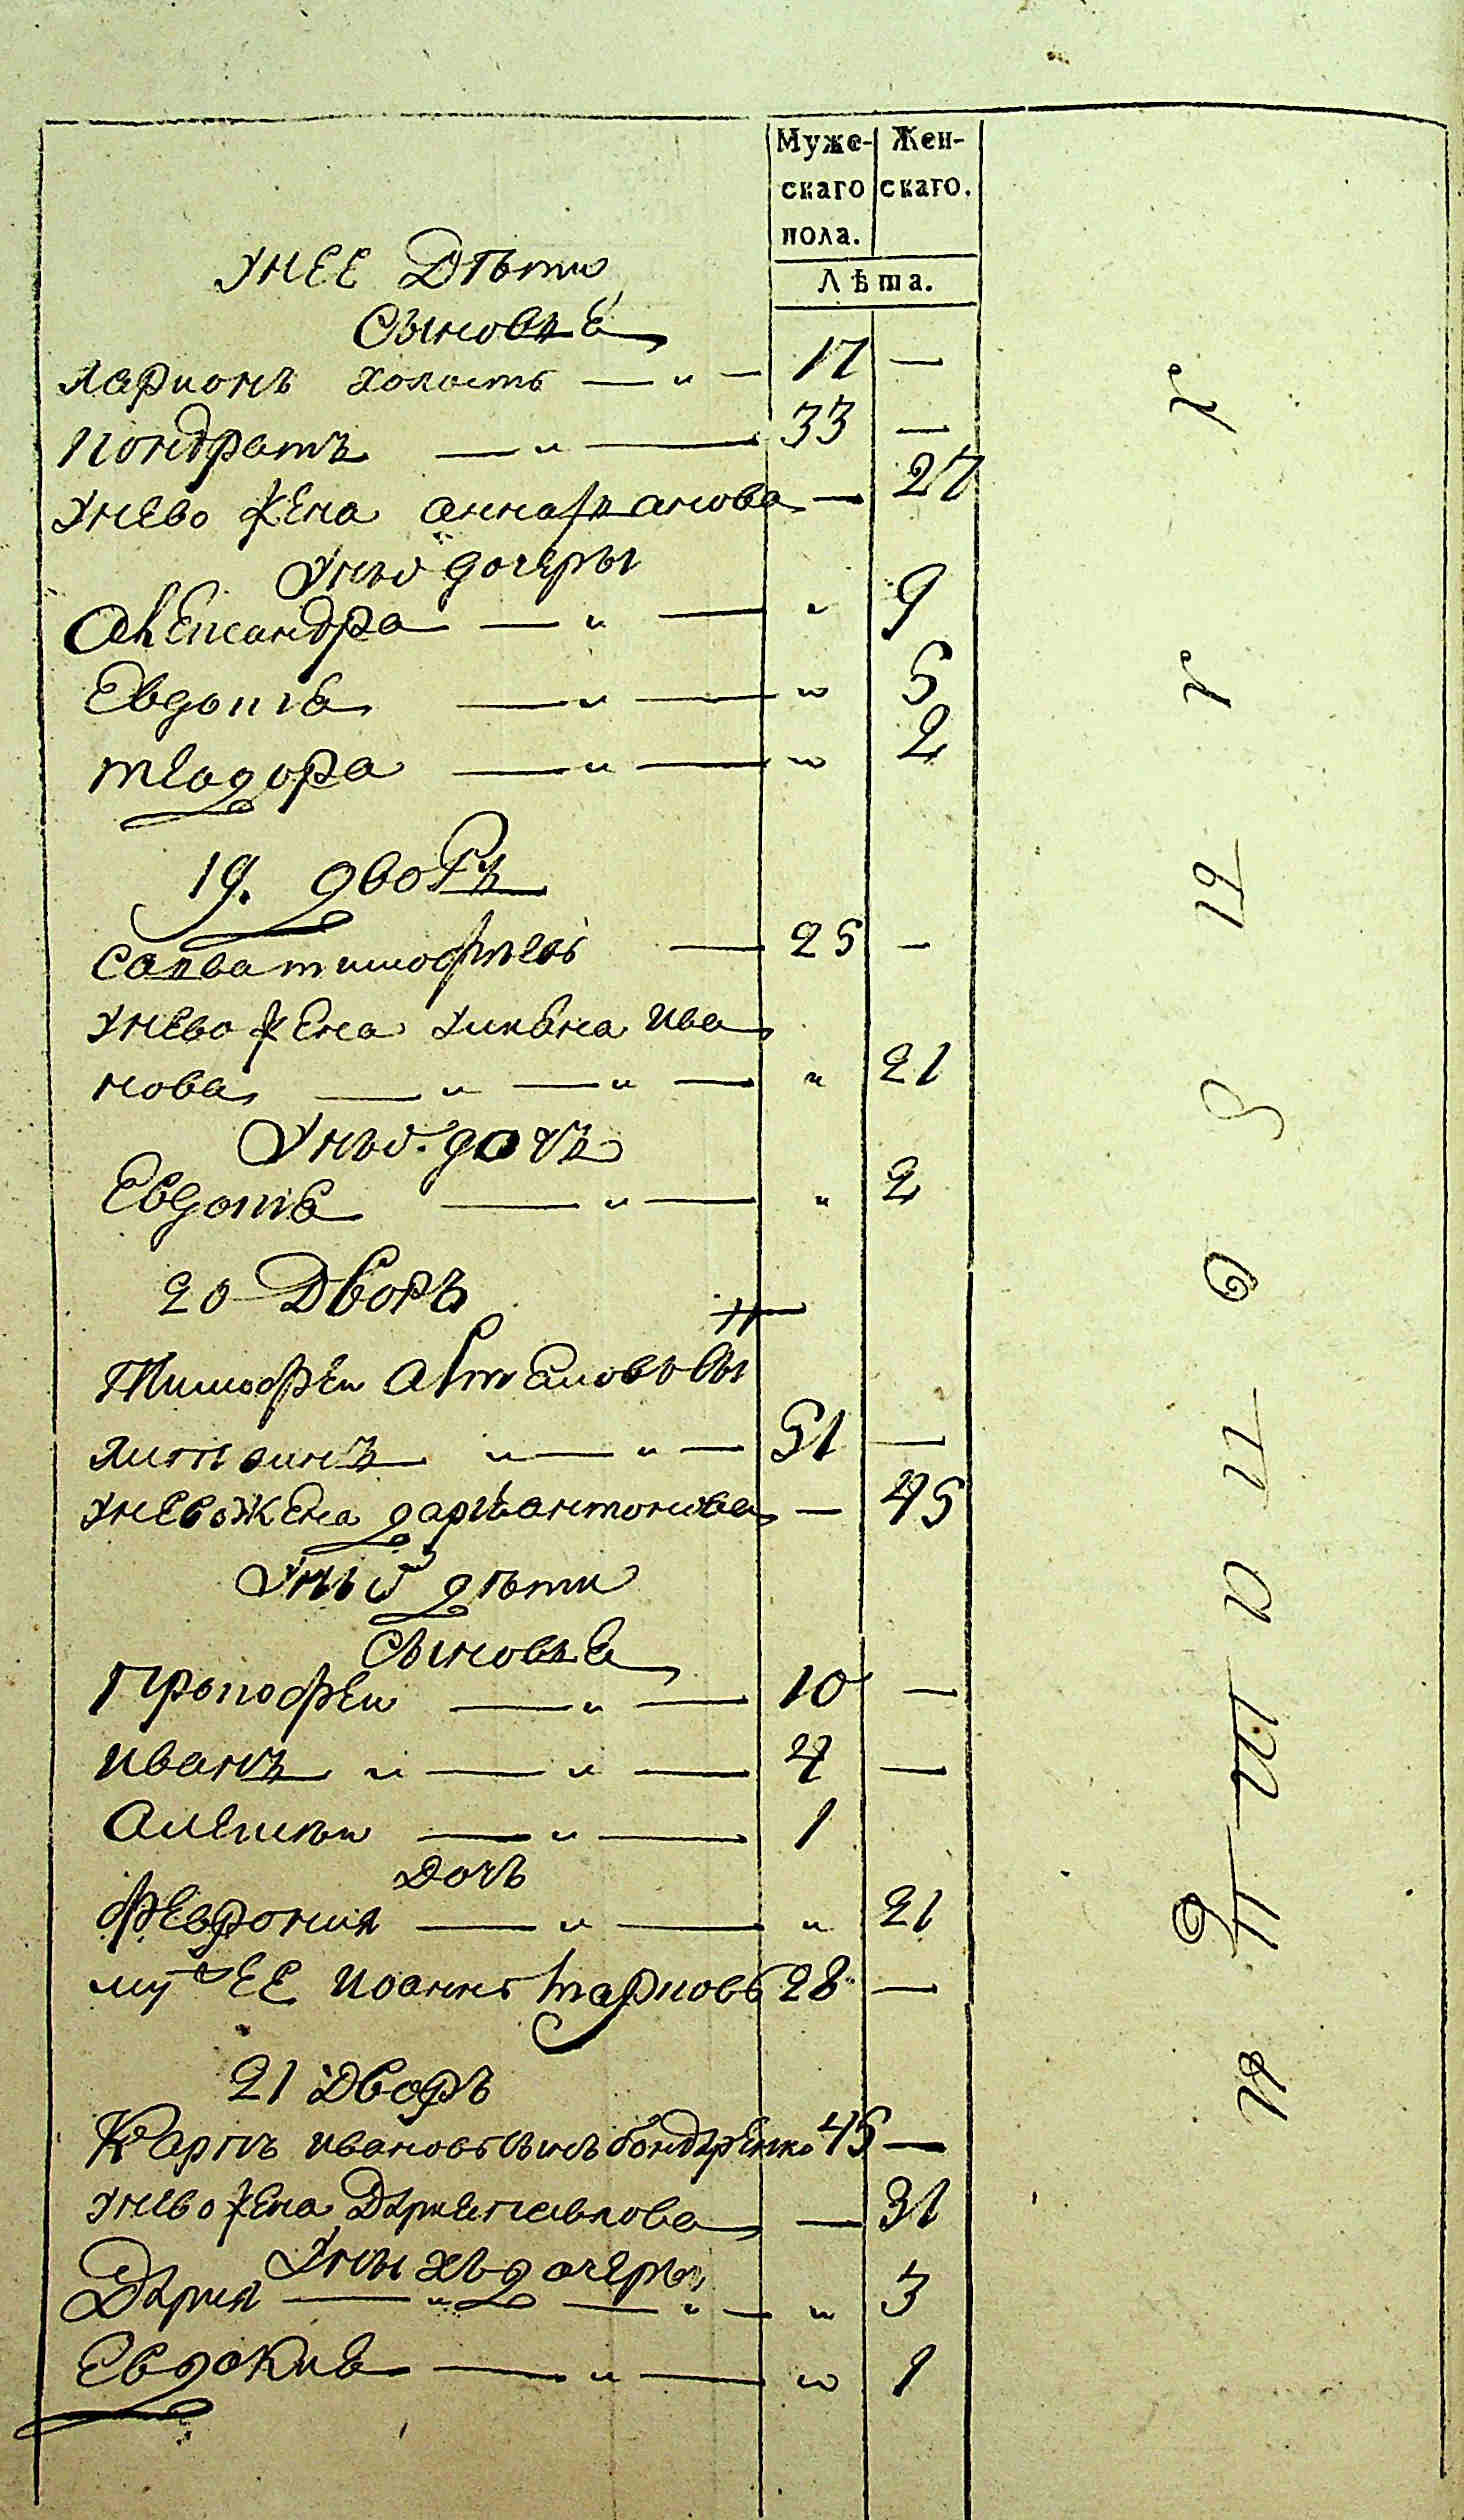 Муже- Жен-
скаго скаго.
пола.
Лѣта.
Унее Дѣти
Сыновья
Ларионъ холостъ — „ — 17 —
Кондратъ — „ — 33 —
Унево жена анна анова — 27
Унихъ дочеры
Александра — „ — „ 9
Евдокия — „ — „ 5
теодора — „ — „ 2
19. дворъ
Савва тимофѣевъ — 25 —
Унево жена Улиана Ива
нова — „ — „ — „ 21
Унихъ дочь
Евдокия — „ — „ 2
20 Дворъ
Тимофей
литвинъ „ — „ — 51 —
Унево жена даря антонова — 45
Унихъ дѣти
Сыновья
Прокофеи — „ — 10 —
Иванъ „ — „ — 4 —
Алексѣи — „ — 1
Дочь
Феврония — „ — „ 21
мужъ ЕЕ Иоаннъ 28 —
21 Дворъ
Карпъ Ивановъ сынъ бондаренко 45 —
Унево жена Дария павлова — 31
Унихъ дочеры
Дария — „ — „ — „ 3
Евдокия — „ — „ 1